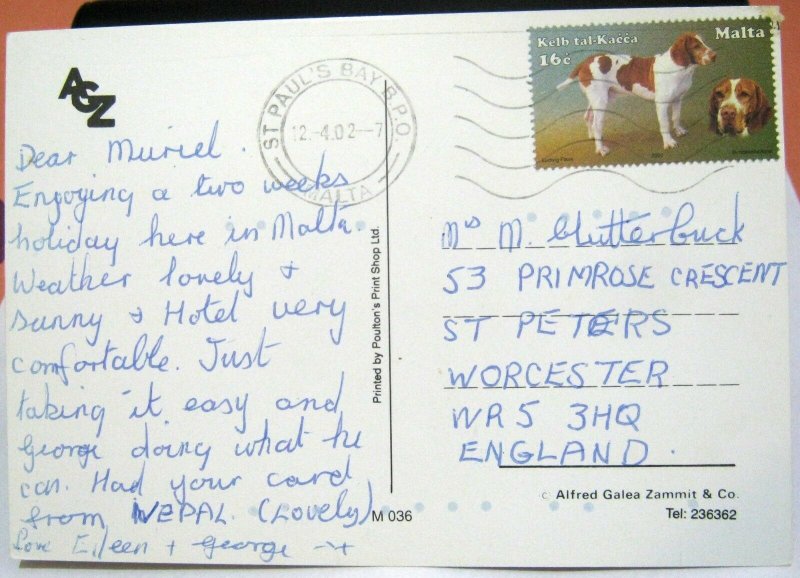 AGZ
Dear Muriel.
Enjoying a two weeks
holiday here in Malta.
Weather lovely +
sunny + Hotel very
comfortable. Just
taking it easy and
George doing what he
can. Had your card
from NEPAL. (Lovely)
Love Eileen + George
ST PAUL'S BAY B.P.O.
12.-4.02--7
MALTA
Kelb tal-Kaċċa
Malta
16c
Printed by Poulton's Print Shop Ltd.
Mrs M. Clutterbuck
53 PRIMROSE CRESCENT
ST PETERS
WORCESTER
WR5 3HQ
ENGLAND.
M 036
© Alfred Galea Zammit & Co.
Tel: 236362